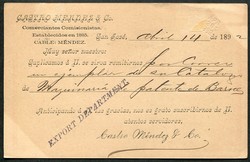 CASTRO MÉNDEZ & Co.
Comerciantes Comisionistas.
Establecidos en 1885.
CABLE: MÉNDEZ
San José, Abril 111 de 1892
Muy señor nuestro:
Suplicamos á U. se sirva remitirnos por Correo
un ejemplar de su Catálogo
de Maquinaria
EXPORT DEPARTMENT
Anticipando á U. las gracias, nos es grato suscribirnos de U. atentos servidores.
Castro Méndez & Co.